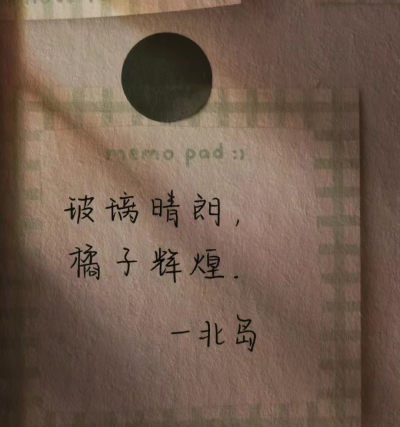 memo pad :)
玻璃晴朗,
橘子辉煌.
—北岛